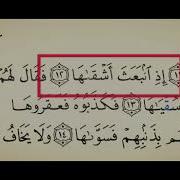 إِذِ ٱنۢبَعَثَ أَشْقَىٰهَا ١٢ فَقَالَ لَهُمْ
سُقْيَٰهَا ١٣ فَكَذَّبُوهُ فَعَقَرُوهَا
بِذَنۢبِهِمْ فَسَوَّىٰهَا ١٤ وَلَا يَخَافُ